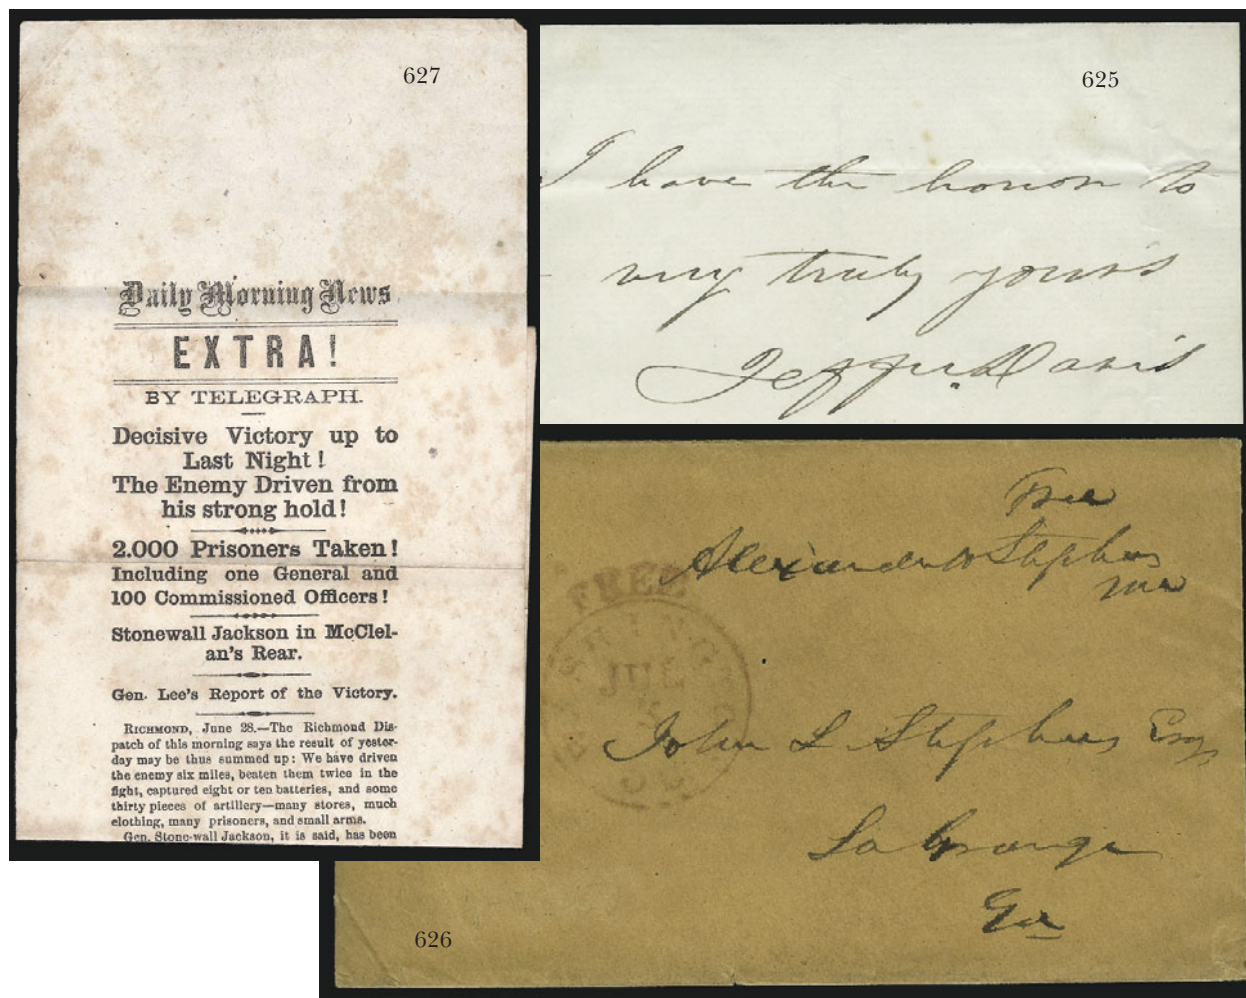 627
Daily Morning News
EXTRA!
BY TELEGRAPH.
Decisive Victory up to
Last Night!
The Enemy Driven from
his strong hold!
2.000 Prisoners Taken!
Including one General and
100 Commissioned Officers!
Stonewall Jackson in McClel-
an's Rear.
Gen. Lee's Report of the Victory.
RICHMOND, June 28.—The Richmond Dis-
patch of this morning says the result of yester-
day may be thus summed up: We have driven
the enemy six miles, beaten them twice in the
fight, captured eight or ten batteries, and some
thirty pieces of artillery—many stores, much
clothing, many prisoners, and small arms.
Gen. Stone-wall Jackson, it is said, has been
625
I have the honor to
very truly yours
Jeffn. Davis
Free
Alexander H Stephens
MC
FREE
WASHINGTON
JUL
John L Stephens Esqr
La Grange
Ga
626